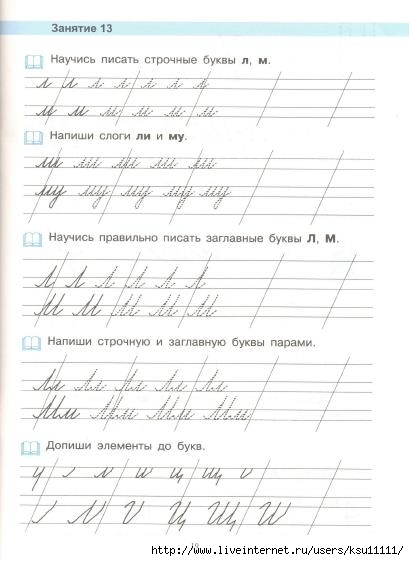 Занятие 13
Научись писать строчные буквы л, м.
л л л л л л
м м м м м м
Напиши слоги ли и му.
ли ли ли ли ли
му му му му му
Научись правильно писать заглавные буквы Л, М.
Л Л Л Л Л Л
М М М М М
Напиши строчную и заглавную буквы парами.
Лл Лл Лл Лл Лл
Мм Мм Мм Мм
Допиши элементы до букв.
18
http://www.liveinternet.ru/users/ksu11111/